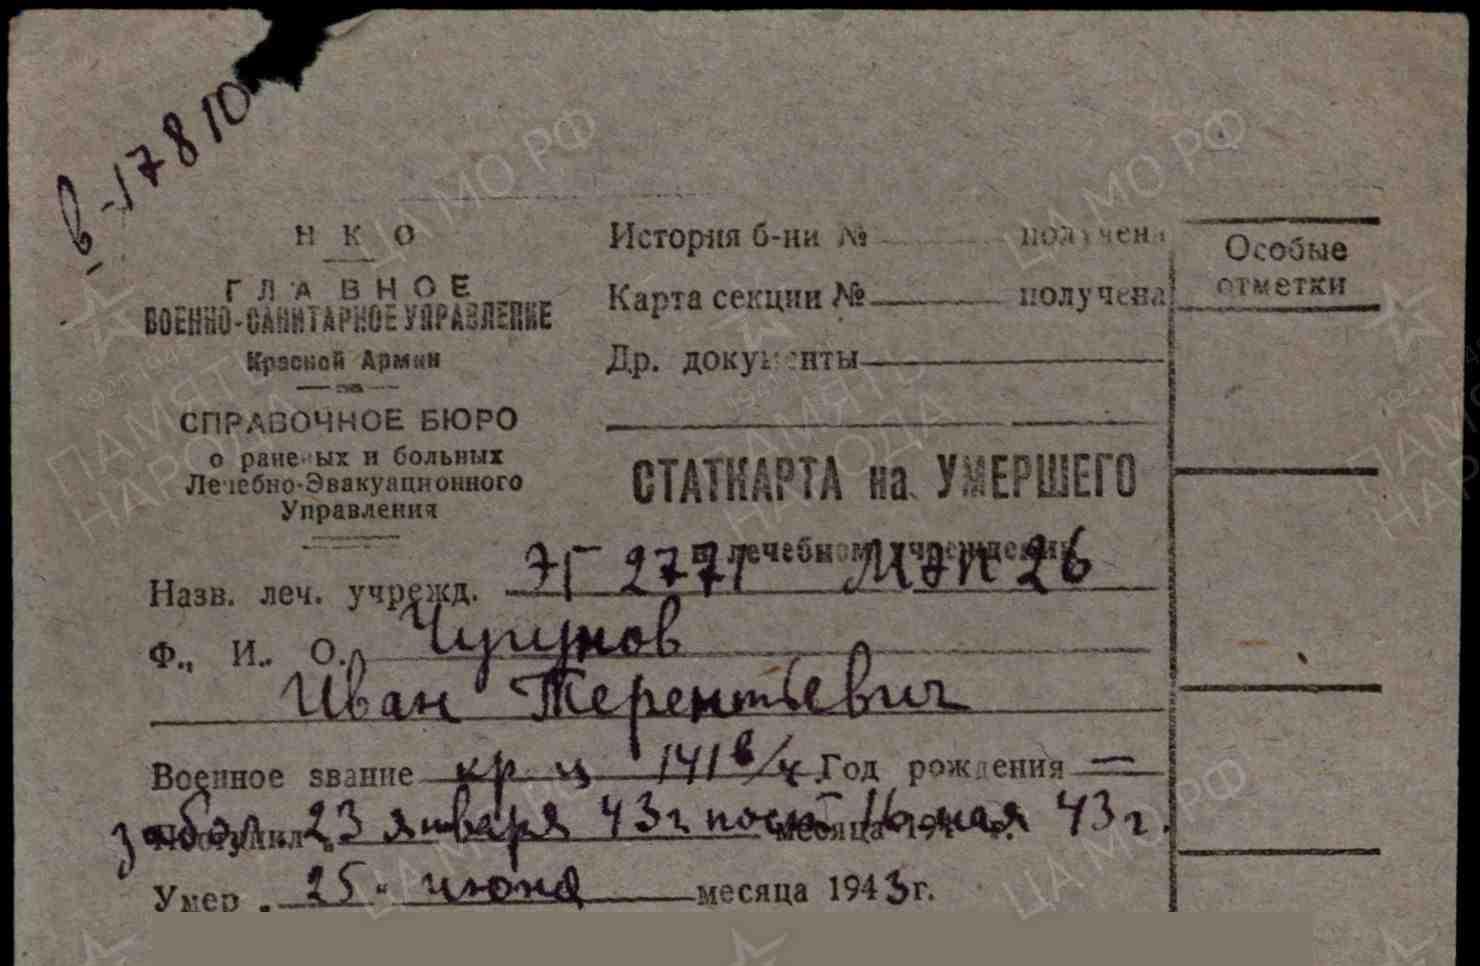 в-17810
Н К О
ГЛАВНОЕ
ВОЕННО-САНИТАРНОЕ УПРАВЛЕНИЕ
Красной Армии
СПРАВОЧНОЕ БЮРО
о раненых и больных
Лечебно-Эвакуационного
Управления
История б-ни № получена
Карта секции № получена
Др. документы
Особые
отметки
СТАТКАРТА на УМЕРШЕГО
в лечебном учреждении
Назв. леч. учрежд. ЭГ 2771 МЭП 26
Ф., И., О. Чугунов
Иван Терентьевич
Военное звание кр-ц 141 в/ч Год рождения —
Поступил забол. 23 января 43г пост. мая 43 г. месяца 194 г.
Умер 25 " июня месяца 1943 г.
ЦАМО РФ
ПАМЯТЬ
НАРОДА
1941-1945